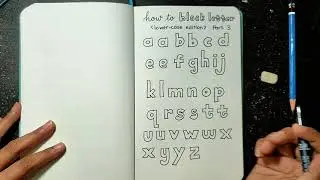 how to block letter
(lower-case edition) Part 3
a a b b c d
e e f g h i j
k l m n o p
q r s s t t
u u v w w x
x y y z